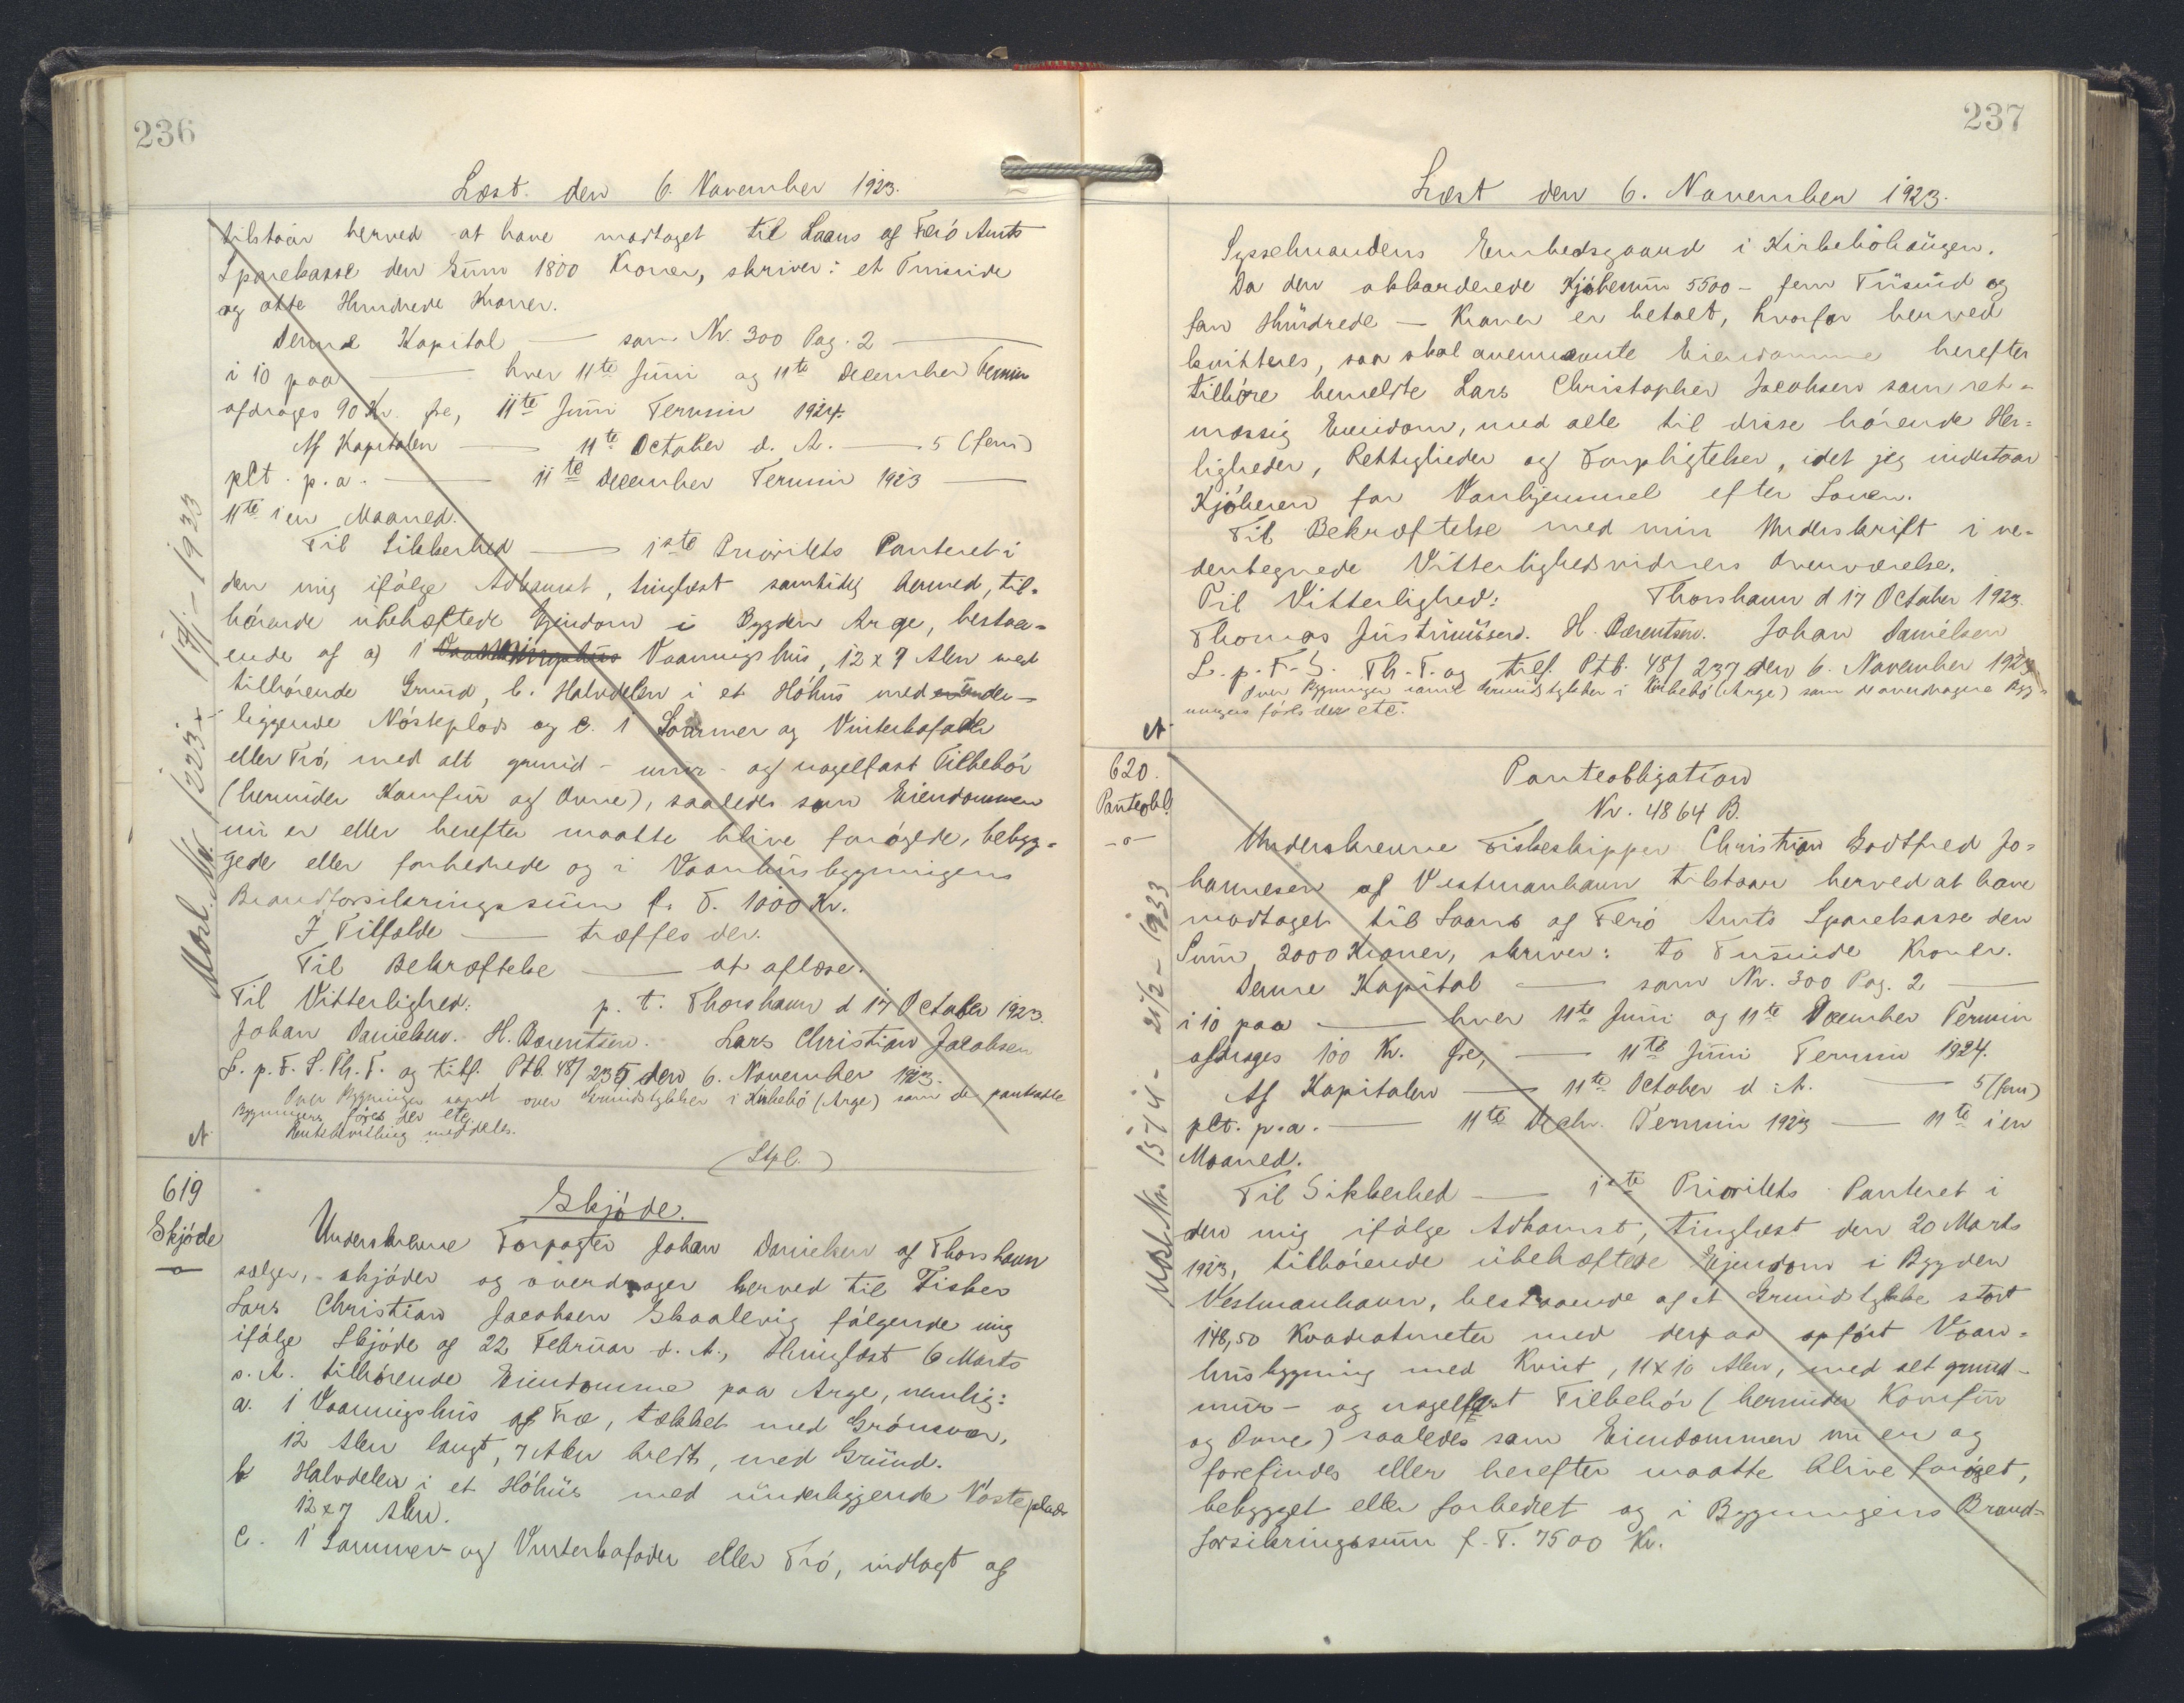 236
Læst. den 6. November 1923.
tilstaar herved at have modtaget til Laans af Færö Amts
Sparekasse den Sum 1800 Kroner, skriver: et Tusinde
og otte Hundrede Kroner.
Denne Kapital — som Nr. 300 Pag. 2 —
i 10 paa — hver 11te Juni og 11te December Termin
afdrages 90 Kr. fra, 11te Juni Termin 1924.
Af Kapitalen — 11te October d. A. — 5 (fem)
pCt. p. a. — 11te December Termin 1923 —
11te i en Maaned.
Til Sikkerhed — 1ste Prioritets Panteret i
den mig ifölge Adkomst, tinglæst samtidig hermed, til-
hörende ubehæftede Ejendom i Bygden Arge, bestaa-
ende af a) 1 Vaaningshus, 12 x 7 Alen med
tilhörende Grund, b. Halvdelen i et Höhus med under-
liggende Nösteplads og c. 1 Sommer og Vinterkafader
eller Trö, med alt grund- mur- og nagelfast Tilbehör
(herunder Komfur og Ovne), saaledes som Eiendommen
nu er eller herefter maatte blive forögede, bebyg-
gede eller forbedrede og i Vaanhusbygningens
Brandforsikringssum f. T. 1000 Kr.
I Tilfælde — træffes der.
Til Bekræftelse — at aflæse.
Til Vitterlighed: p. t. Thorshavn d 17 October 1923.
Johan Danielsen. H. Dorentsen. Lars Christian Jacobsen
L. p. F. S. Th. T. og tilf. Ptb. 48/235 den 6. November 1923.
Over Bygninger samt over Grundstykker i Kirkebö (Arge) som de pantsatte
Bygningers föres der etc.
Rentebevilling meddeles.
Morl. Nr. 1223 x 17/1-1933
(Stpl.)
619
Skjöde
Skjöde.
Underskrevne Forpagter Johan Danielsen af Thorshavn
sælger, skjöder og overdrager herved til Fisker
Lars Christian Jacobsen Skaalevig fölgende mig
ifölge Skjöde af 22 Februar d. A., thinglæst 6 Marts
s. A. tilhörende Eiendomme paa Arge, nemlig:
a. 1 Vaaningshus af Træ, tækket med Grönsvær,
12 Alen langt, 7 Alen bredt, med Grund.
b Halvdelen i et Höhus med underliggende Nösteplads
12x7 Alen.
c. 1 Sommer- og Vinterkafader eller Trö, indlagt af
237
Læst den 6. November 1923.
Sysselmandens Embedsgaard i Kirkeböhaugen.
Da den akkorderede Kjöbesum 5500 - fem Tusind og
fem Hundrede — Kroner er betalt, hvorfor herved
kvitteres, saa skal ovennævnte Eiendomme herefter
tilhöre bemeldte Lars Christopher Jacobsen som ret-
mæssig Eiendom, med alle til disse hörende Her-
ligheder, Rettigheder og Forpligtelser, idet jeg indestaar
Kjöberen for Vanhjemmel efter Loven.
Til Bekræftelse med min Underskrift i ne-
dentegnede Vitterlighedsvidners Overværelse.
Til Vitterlighed: Thorshavn d 17 October 1923.
Thomas Justinussen. H. Dorentsen. Johan Danielsen
L. p. F. S. Th. T. og tilf. Ptb. 48/237 den 6. November 1923
Over Bygninger samt Grundstykker i Kirkebö (Arge) som de overdragne Byg-
ningers föres der etc.
620.
Panteobl.
Panteobligation
Nr. 4864 B.
Underskrevne Fiskeskipper Christian Godtfred Jo-
hannesen af Vestmanhavn tilstaar herved at have
modtaget til Laans af Færö Amts Sparekasse den
Sum 2000 Kroner, skriver: to Tusinde Kroner.
Denne Kapital — som Nr. 300 Pag. 2 —
i 10 paa — hver 11te Juni og 11te December Termin
afdrages 100 Kr. fra, — 11te Juni Termin 1924.
Af Kapitalen — 11te October d. A. — 5 (fem)
pCt. p. a. — 11te Decbr. Termin 1923 — 11te i en
Maaned.
Til Sikkerhed — 1ste Prioritets Panteret i
den mig ifölge Adkomst, tinglæst den 20 Marts
1923, tilhörende ubehæftede Ejendom i Bygden
Vestmanhavn, bestaaende af et Grundstykke stort
148,50 Kvadratmeter med derpaa opfört Vaan-
husbygning med Kvist, 11x10 Alen, med alt grund-
mur- og nagelfast Tilbehör (herunder Komfur
og Ovne) saaledes som Eiendommen nu er og
forefindes eller herefter maatte blive foröget,
bebygget eller forbedret og i Bygningens Brand-
forsikringssum f. T. 7500 Kr.
Morl. Nr. 1571 - 21/2-1933